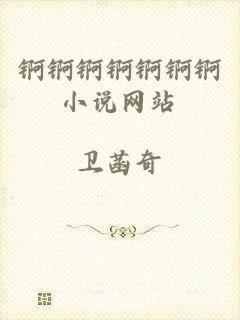 锕锕锕锕锕锕锕
小说网站
卫菡奇